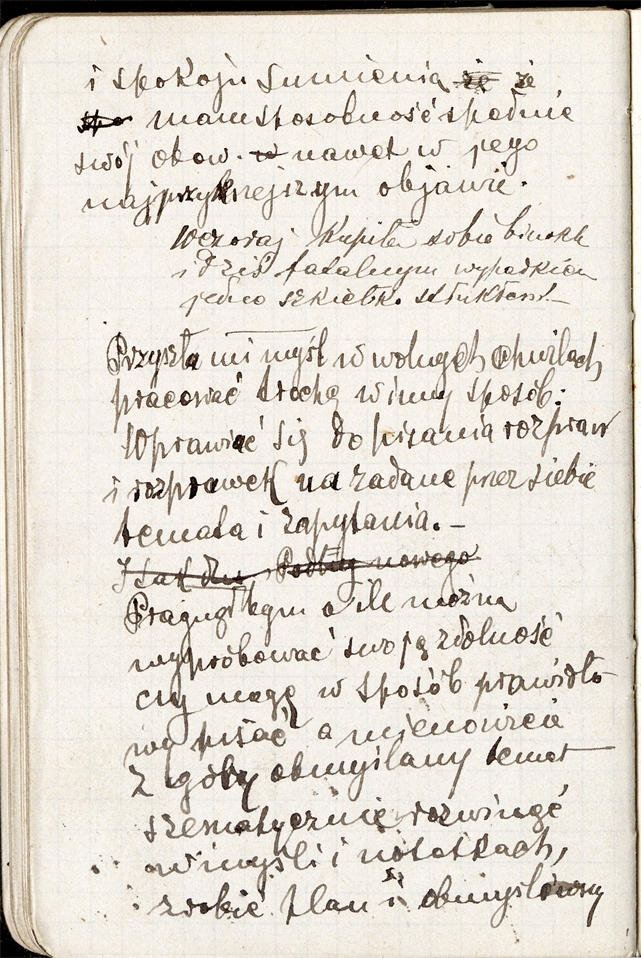 i spokoju sumienia że że
spo mam sposobność spełnić
swój obow. w nawet w jego
najprzykrzejszym objawie.
Wczoraj kupiłem sobie binokle
i dziś fatalnym wypadkiem
jedno szkiełko stłukłem.—
Przyszła mi myśl w wolnych chwilach
pracować trochę w inny sposób:
Wprawiać się do pisania rozpraw
i rozprawek na zadane przez siebie
temata i zapytania.—
I tak dnu Podług nowego
Pragnąłbym o ile można
wypróbować swoją zdolność
czy mogę w sposób prawidło-
wy pisać a mianowicie
z góry obmyślany temat
szematycznie rozwinąć
w myśli i notatkach,
zrobić plan i obmyślawszy